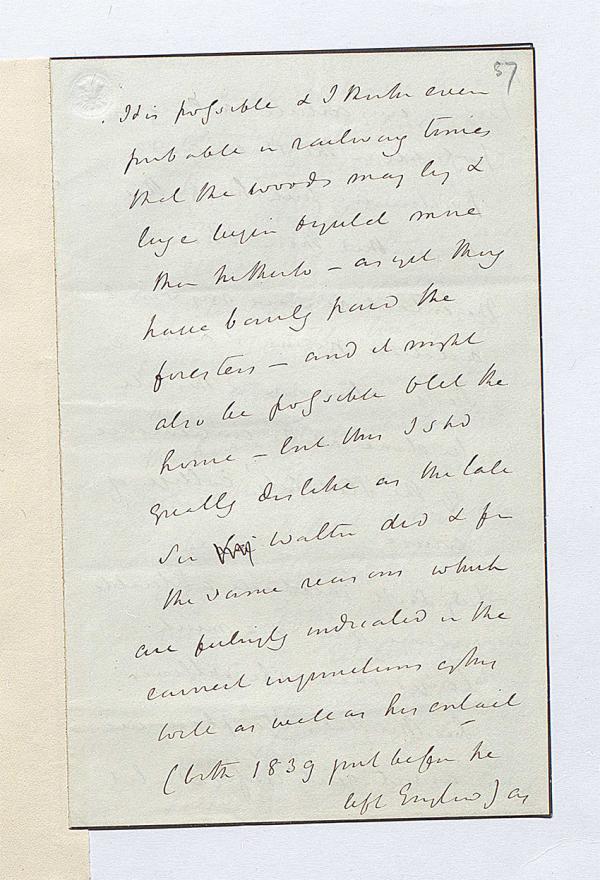 57
It is possible & I think even
probable in railway times
that the woods may by &
large begin to yield more
than hitherto – as yet they
have barely paid the
foresters – and it might
also be possible to let the
home – but this I shd
greatly dislike as the late
Sir Walter did & for
the same reasons which
are feelingly indicated in the
earnest injunctions of his
will as well as his entail
(both 1839 just before he
left England) as